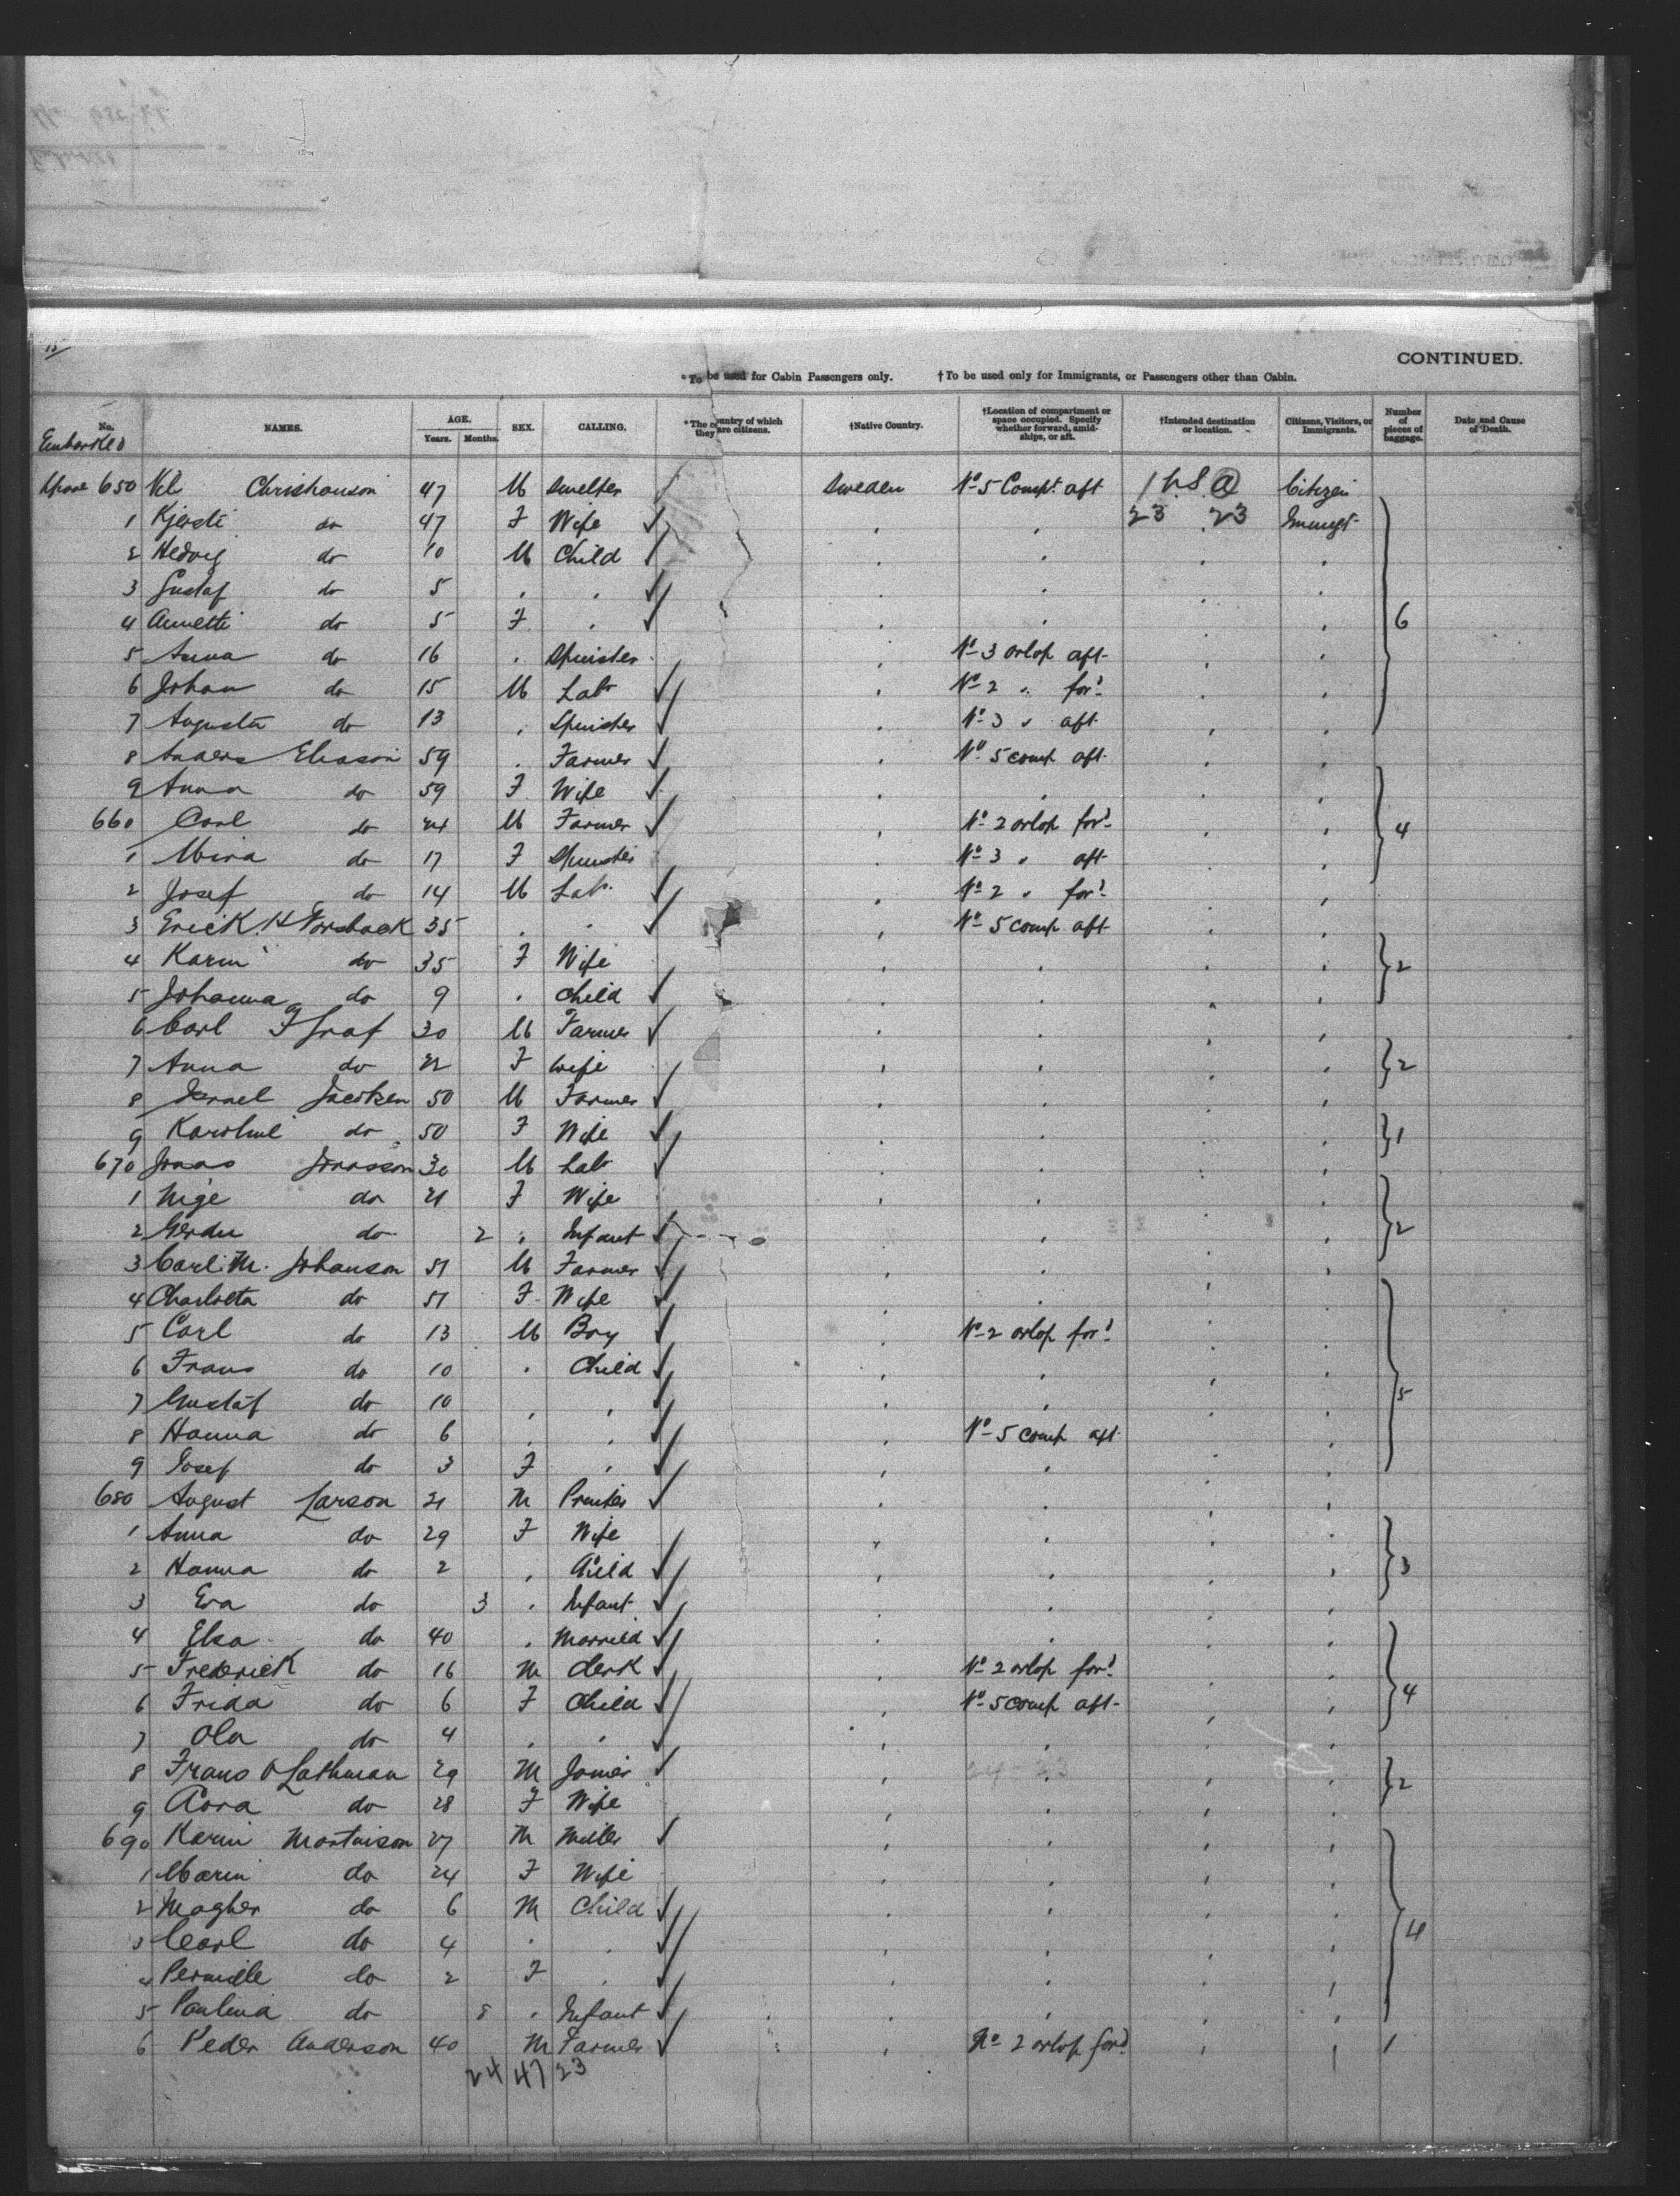 15
CONTINUED.
*To be used for Cabin Passengers only. †To be used only for Immigrants, or Passengers other than Cabin.
No. NAMES. AGE. Years. Months. SEX. CALLING. *The country of which they are citizens. †Native Country. †Location of compartment or space occupied. Specify whether forward, amidships, or aft. †Intended destination or location. Citizens, Visitors, or Immigrants. Number of pieces of baggage. Date and Cause of Death.
Embarked
650 Christianson 47 M Smelter Sweden No 5 Compt. aft U.S.A Citizen
1 Kjersti do 47 F Wife 23 23 Immigt
2 Hedvig do 10 M Child
3 Gustaf do 5
4 Annetti do 5 F 6
5 Anna do 16 Spinster No 3 orlop aft
6 Johan do 15 M Lab No 2 " ford
7 Augusta do 13 Spinster No 3 " aft
8 Anders Eliason 59 Farmer No 5 comp aft
9 Anna do 59 F Wife
660 Carl do 24 M Farmer No 2 orlop ford 4
1 Mina do 17 F Spinster No 3 " aft
2 Josef do 14 M Lab. No 2 " ford
3 Erick H 35 No 5 comp aft
4 Karin do 35 F Wife 2
5 Johanna do 9 Child
6 Carl F Graf 30 M Farmer
7 Anna do 22 F Wife 2
8 Jacobsen 50 M Farmer
9 do 50 F Wife 1
670 Jonas Jonasson 30 M Lab
1 do 21 F Wife
2 do 2 Infant 2
3 Carl M. Johanson 51 M Farmer
4 Charlotta do 51 F Wife
5 Carl do 13 M Boy No 2 orlop ford
6 Frans do 10 Child
7 Gustaf do 10 5
8 Hanna do 6 No 5 comp aft
9 Josef do 3 F
680 August Larson 21 M Printer
1 Anna do 29 F Wife
2 Hanna do 2 Child 3
3 Eva do 3 Infant
4 Elsa do 40 Married
5 Frederick do 16 M Clerk No 2 orlop ford
6 Frida do 6 F Child No 5 comp aft 4
7 Ola do 4
8 Frans O Lathman 29 M Joiner 2
9 do 28 F Wife
690 Karin Martinson 27 M Miller
1 Maria do 24 F Wife
2 do 6 M Child
3 Carl do 4 4
4 Pernille do 2 F
5 Paulina do 8 Infant
6 Peder Anderson 40 M Farmer No 2 orlop ford 1
24 47 23